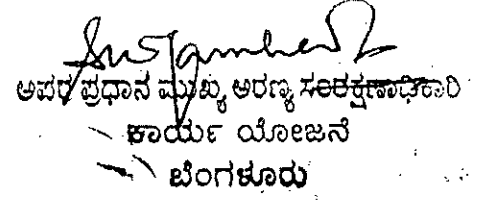 ಅಪರ ಪ್ರಧಾನ ಮುಖ್ಯ ಅರಣ್ಯ ಸಂರಕ್ಷಣಾಧಿಕಾರಿ
ಕಾರ್ಯ ಯೋಜನೆ
ಬೆಂಗಳೂರು